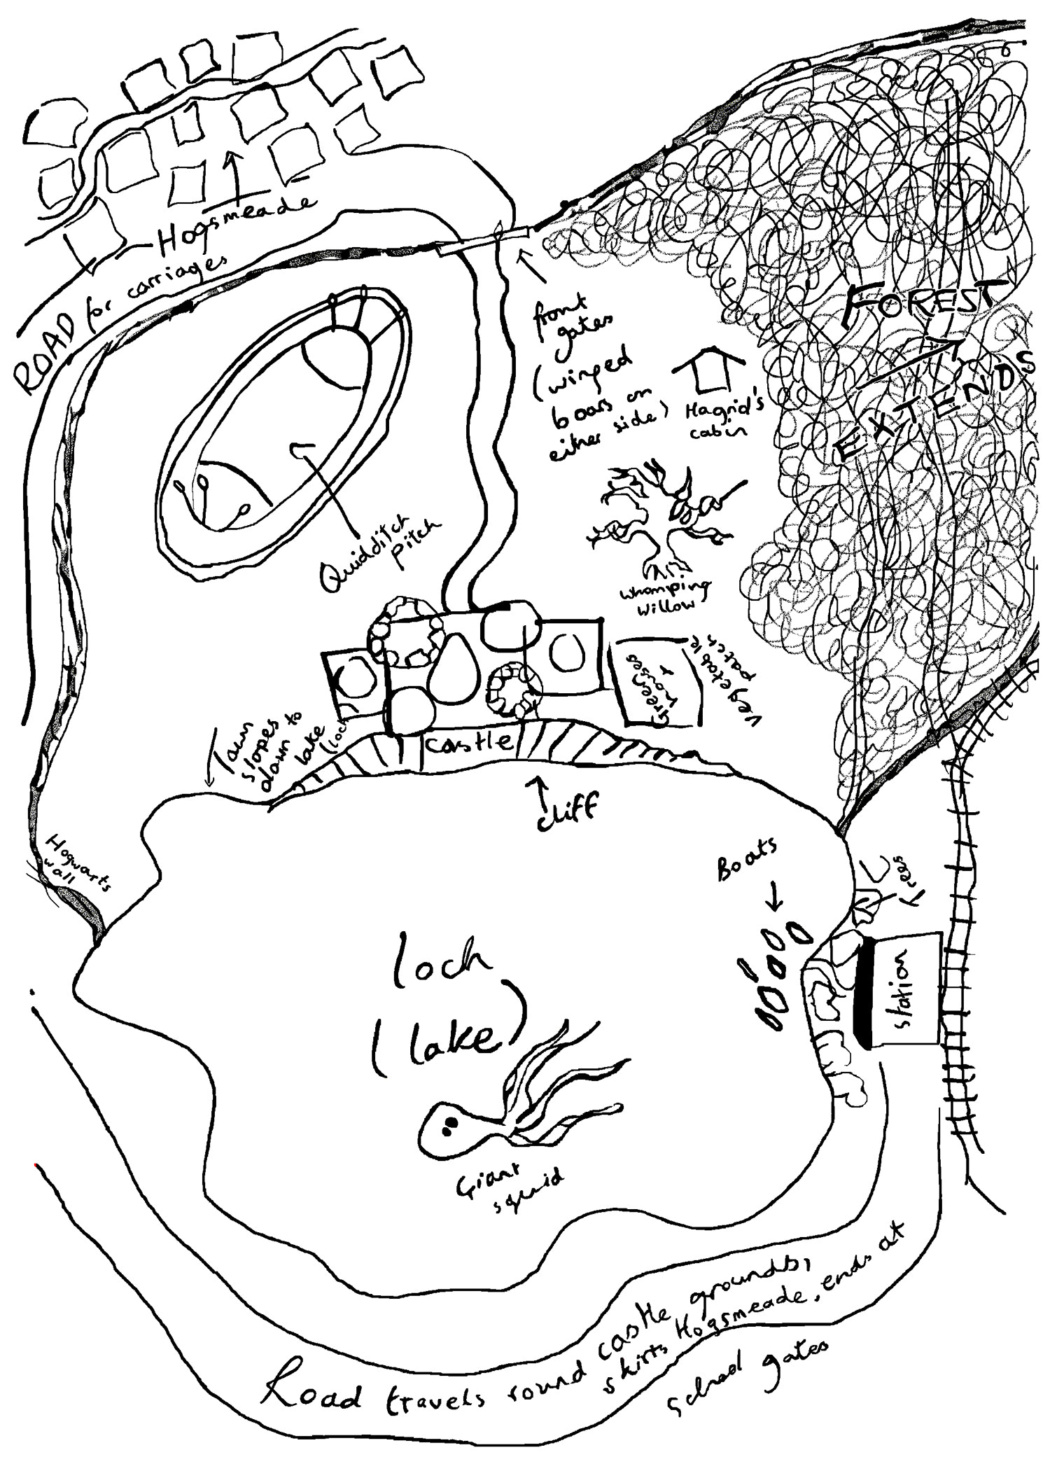 Hogsmeade
ROAD for carriages
front
gates
(winged
boars on
either side)
Hagrid's
cabin
FOREST
EXTENDS
Quidditch
Pitch
Whomping
Willow
Green
houses
&
vegetable
patch
lawn
slopes to
down lake
(loch
castle
cliff
Hogwarts
wall
Boats
trees
station
loch
(lake)
Giant
squid
Road travels round castle grounds,
skirts Hogsmeade, ends at
school gates